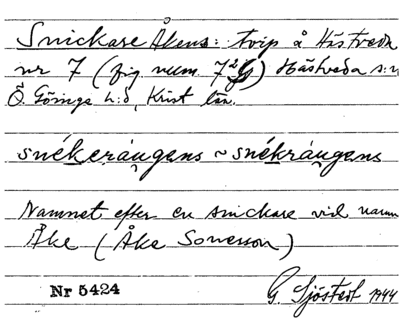 Snickare Åkens: torp å Hästveda
nr 7 (fig num. 7²⁹) Hästveda s:n
Ö. Göinge h:d, Krist län.
snékeráugens ~ snékráugens
Namnet efter en snickare vid namn
Åke (Åke Sonesson)
Nr 5424 G. Sjöstedt 1944